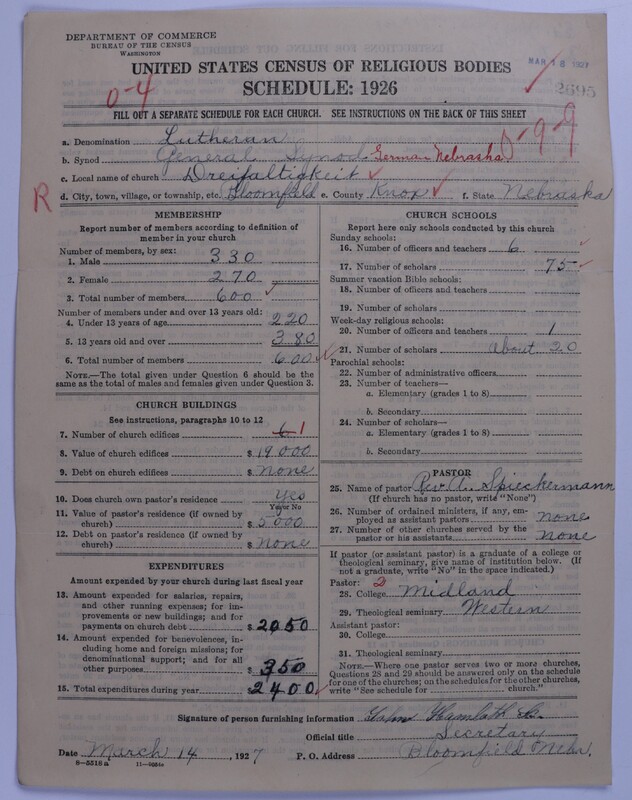 DEPARTMENT OF COMMERCE
BUREAU OF THE CENSUS
WASHINGTON
MAR 18 1927
2695
UNITED STATES CENSUS OF RELIGIOUS BODIES
SCHEDULE: 1926
0-4
FILL OUT A SEPARATE SCHEDULE FOR EACH CHURCH. SEE INSTRUCTIONS ON THE BACK OF THIS SHEET
a. Denomination Lutheran
b. Synod General Synod German Nebraska
0-9-9
c. Local name of church Dreifaltigkeit
R
d. City, town, village, or township, etc. Bloomfield e. County Knox f. State Nebraska
MEMBERSHIP
Report number of members according to definition of member in your church
Number of members, by sex:
1. Male 330
2. Female 270
3. Total number of members 600
Number of members under and over 13 years old:
4. Under 13 years of age 220
5. 13 years old and over 380
6. Total number of members 600
NOTE.—The total given under Question 6 should be the same as the total of males and females given under Question 3.
CHURCH BUILDINGS
See instructions, paragraphs 10 to 12
7. Number of church edifices 1
8. Value of church edifices $ 19000
9. Debt on church edifices $ None
10. Does church own pastor's residence Yes
Yes or No
11. Value of pastor's residence (if owned by church) $ 5000
12. Debt on pastor's residence (if owned by church) $ None
EXPENDITURES
Amount expended by your church during last fiscal year
13. Amount expended for salaries, repairs, and other running expenses; for improvements or new buildings; and for payments on church debt $ 2050
14. Amount expended for benevolences, including home and foreign missions; for denominational support; and for all other purposes $ 350
15. Total expenditures during year $ 2400
CHURCH SCHOOLS
Report here only schools conducted by this church
Sunday schools:
16. Number of officers and teachers 6
17. Number of scholars 75
Summer vacation Bible schools:
18. Number of officers and teachers
19. Number of scholars
Week-day religious schools:
20. Number of officers and teachers 1
21. Number of scholars about 20
Parochial schools:
22. Number of administrative officers
23. Number of teachers—
a. Elementary (grades 1 to 8)
b. Secondary
24. Number of scholars—
a. Elementary (grades 1 to 8)
b. Secondary
PASTOR
25. Name of pastor Spieckermann
(If church has no pastor, write "None")
26. Number of ordained ministers, if any, employed as assistant pastors none
27. Number of other churches served by the pastor or his assistants none
If pastor (or assistant pastor) is a graduate of a college or theological seminary, give name of institution below. (If not a graduate, write "No" in the space indicated.)
Pastor: 2
28. College Midland
29. Theological seminary Western
Assistant pastor:
30. College
31. Theological seminary
NOTE.—Where one pastor serves two or more churches, Questions 28 and 29 should be answered only on the schedule for one of the churches; on the schedules for the other churches, write "See schedule for church."
Signature of person furnishing information
Official title Secretary
Date March 14, 1927 P. O. Address Bloomfield Nebr.
8—5516 a